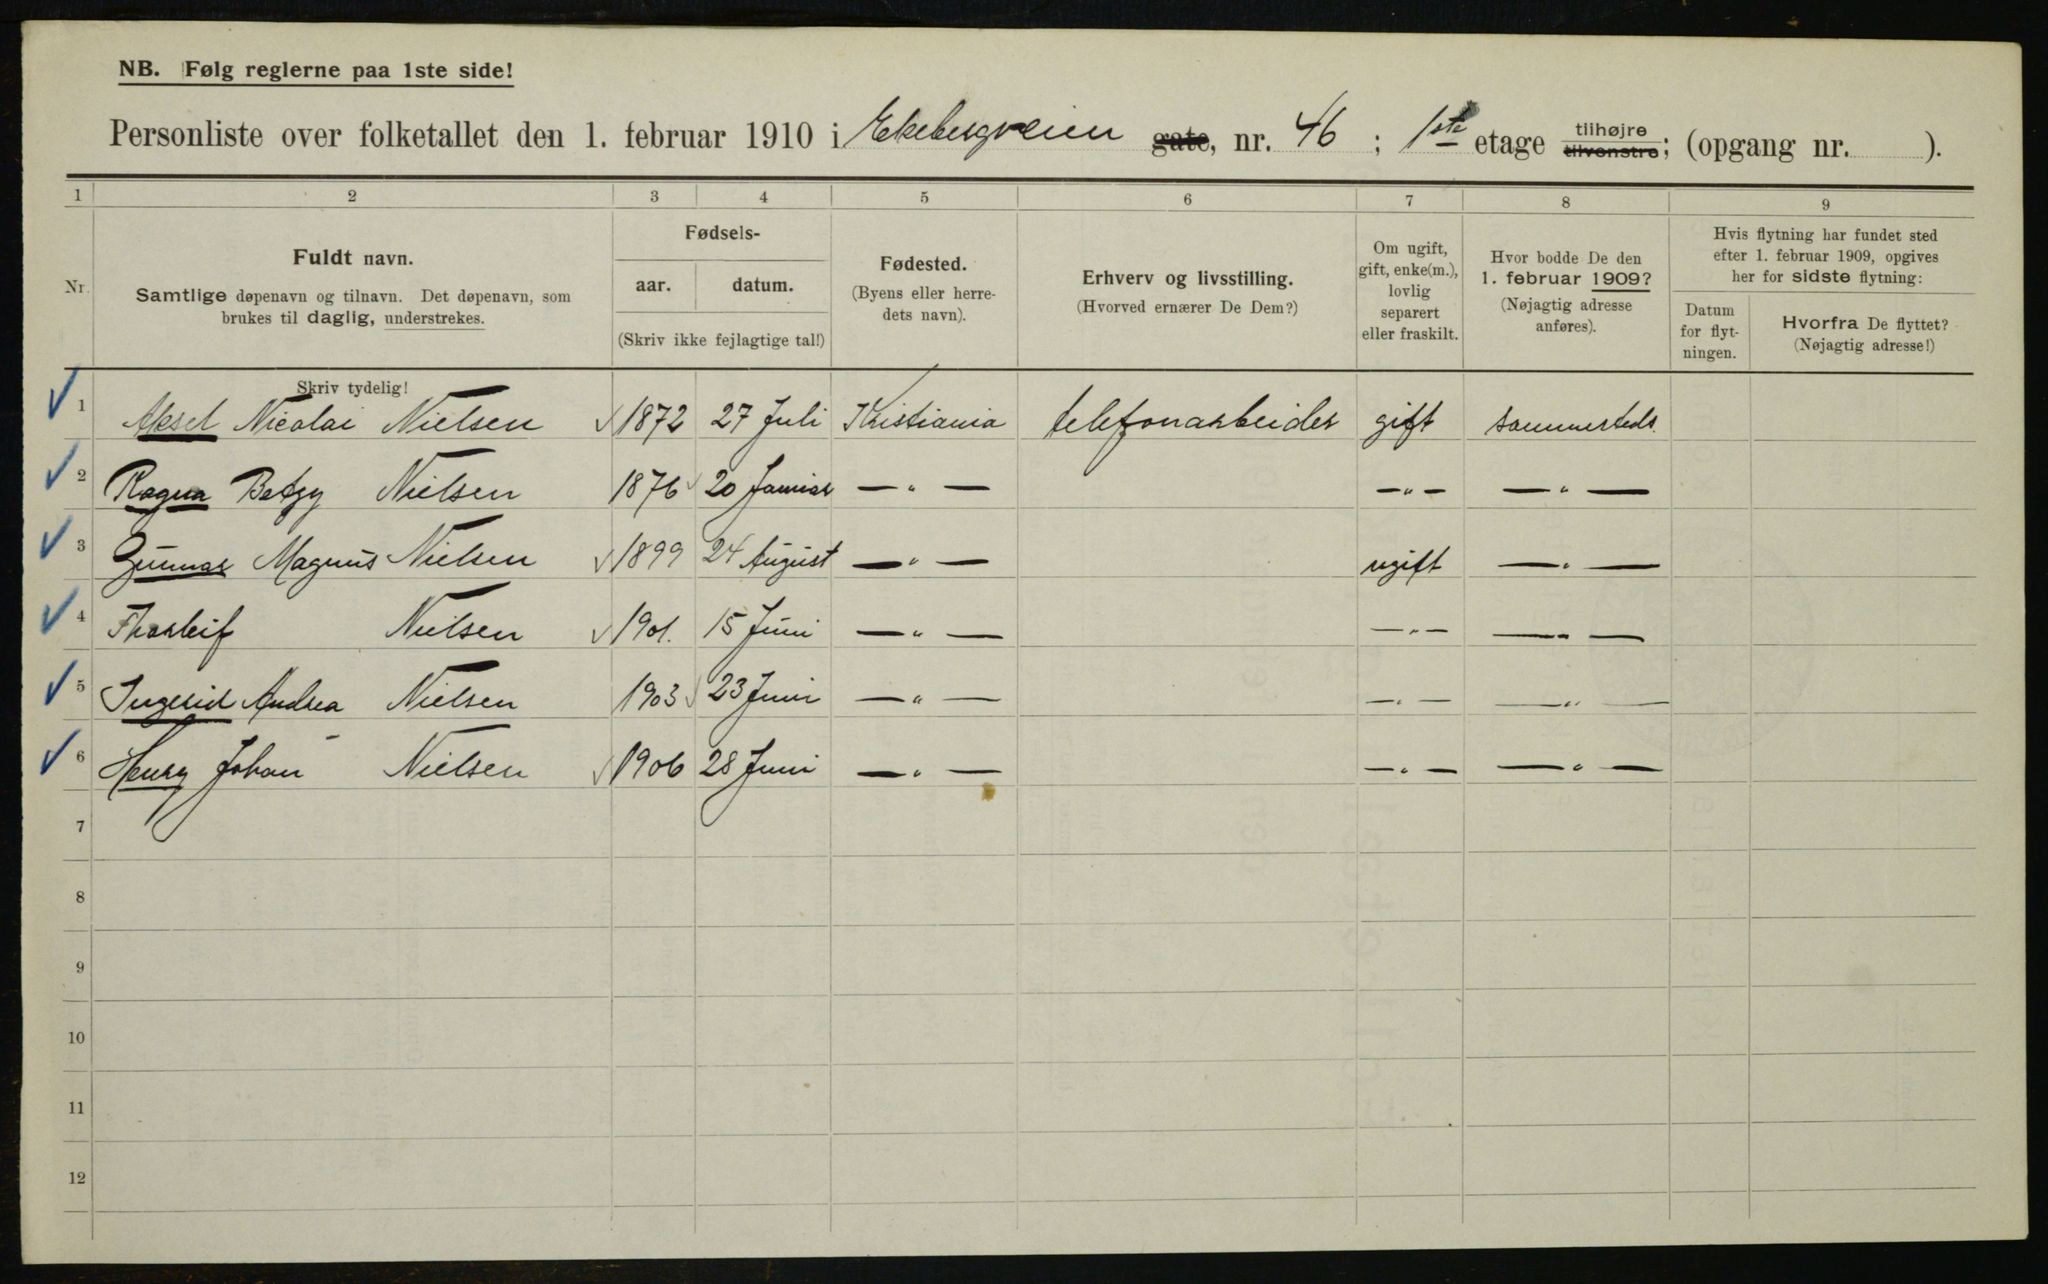 NB. Følg reglerne paa 1ste side!
Personliste over folketallet den 1. februar 1910 i Ekebergveien gate, nr. 46 ; 1ste etage tilhøjre tilvenstre; (opgang nr. ).
1 2 3 4 5 6 7 8 9
Nr.
Fuldt navn.
Samtlige døpenavn og tilnavn. Det døpenavn, som
brukes til daglig, understrekes.
Fødsels-
aar. datum.
(Skriv ikke fejlagtige tal!)
Fødested.
(Byens eller herre-
dets navn).
Erhverv og livsstilling.
(Hvorved ernærer De Dem?)
Om ugift,
gift, enke(m.),
lovlig
separert
eller fraskilt.
Hvor bodde De den
1. februar 1909?
(Nøjagtig adresse
anføres).
Hvis flytning har fundet sted
efter 1. februar 1909, opgives
her for sidste flytning:
Datum
for flyt-
ningen.
Hvorfra De flyttet?
(Nøjagtig adresse!)
Skriv tydelig!
1 Aksel Nicolai Nielsen 1872 27 Juli Kristiania telefonarbeider gift sammesteds.
2 Ragna Betzy Nielsen 1876 20 Januar — " — — " — — " —
3 Gunnar Magnus Nielsen 1899 24 August — " — ugift — " —
4 Thorleif Nielsen 1901. 15 Juni — " — — " — — " —
5 Ingerid Andrea Nielsen 1903 23 Juni — " — — " — — " —
6 Henry Johan Nielsen 1906 28 Juni — " — — " — — " —
7
8
9
10
11
12